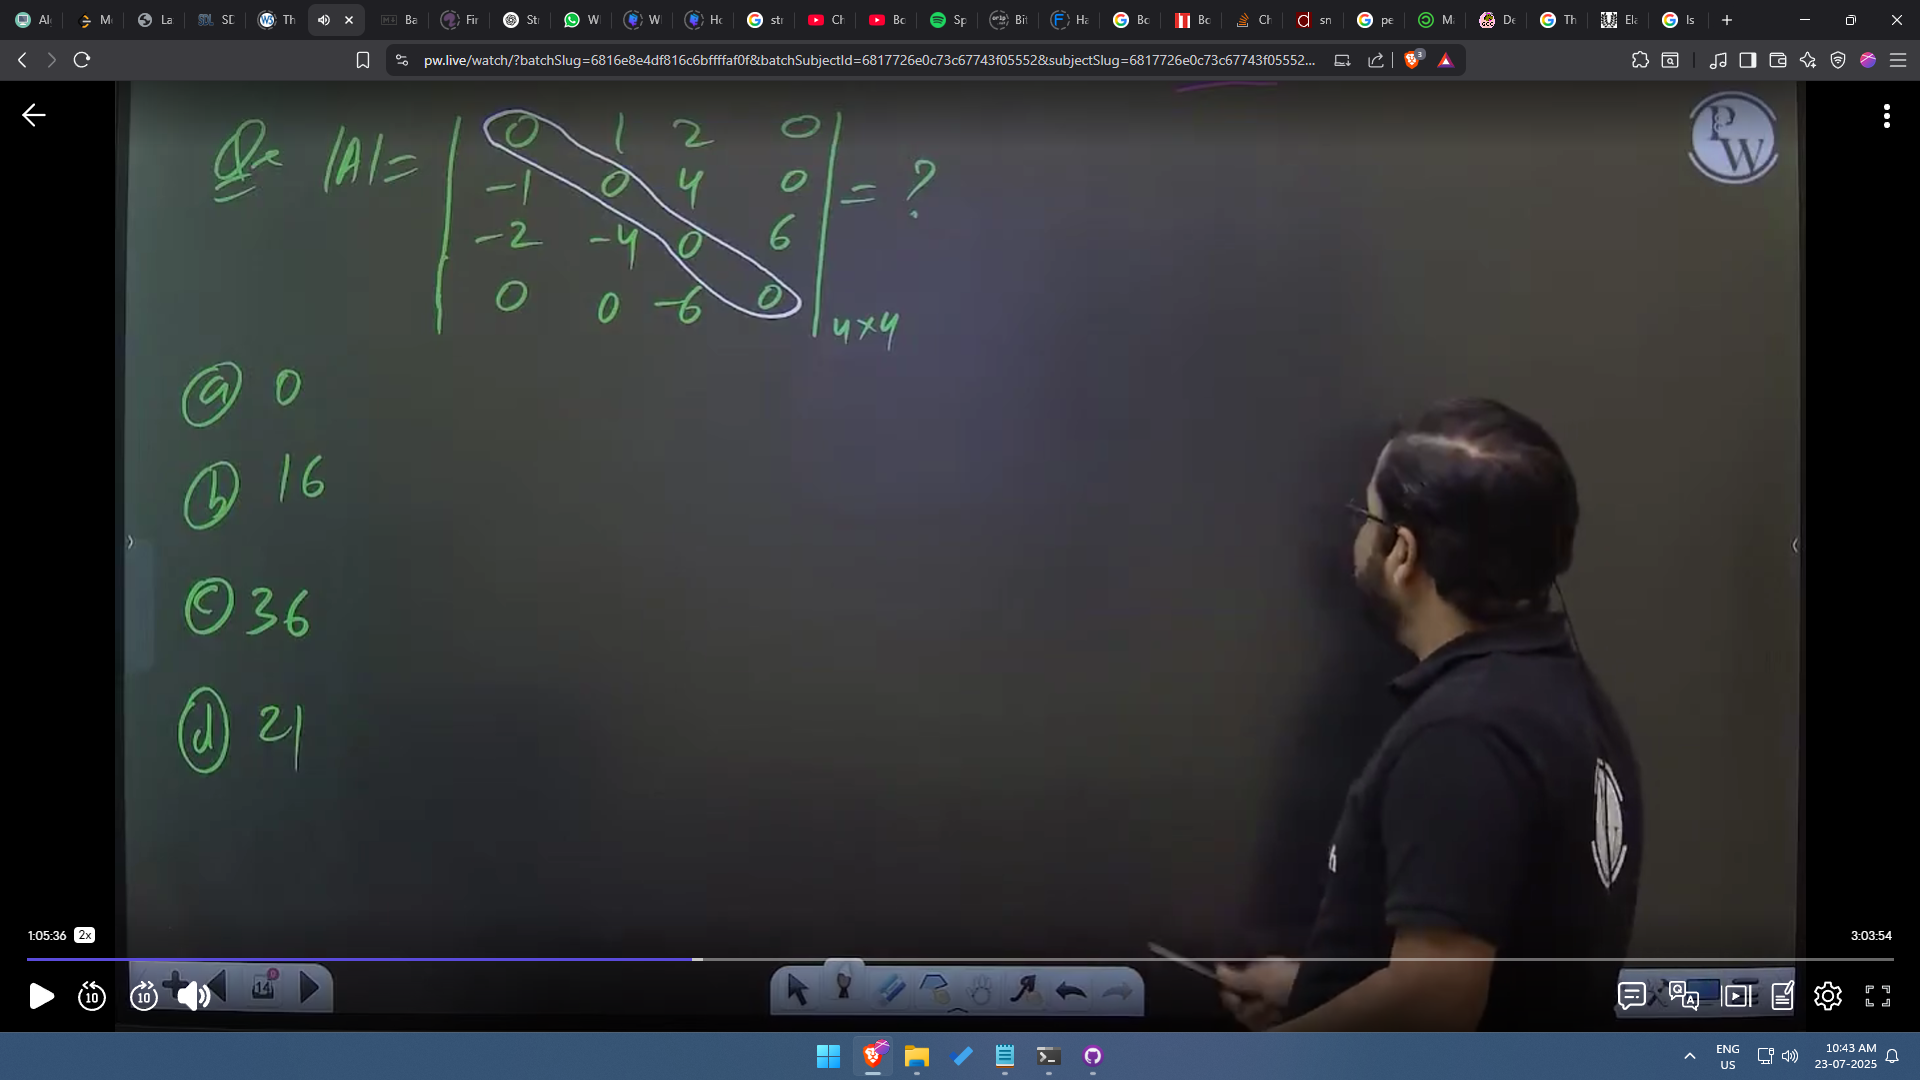 Al
M
La
SD
Th
Ba
Fir
St
W
W
Ho
str
Ch
Bo
Sp
Bit
Ha
Bo
Bo
Ch
sn
pe
M
De
Th
Ela
Is
pw.live/watch/?batchSlug=6816e8e4df816c6bffffaf0f&batchSubjectId=6817726e0c73c67743f05552&subjectSlug=6817726e0c73c67743f05552...
3
PW
Q. |A| = | 0 1 2 0 |
| -1 0 4 0 | = ?
| -2 -4 0 6 |
| 0 0 -6 0 | 4×4
(a) 0
(b) 16
(c) 36
(d) 21
1:05:36 2x
3:03:54
10
10
14
0
Q A
ENG
US
10:43 AM
23-07-2025